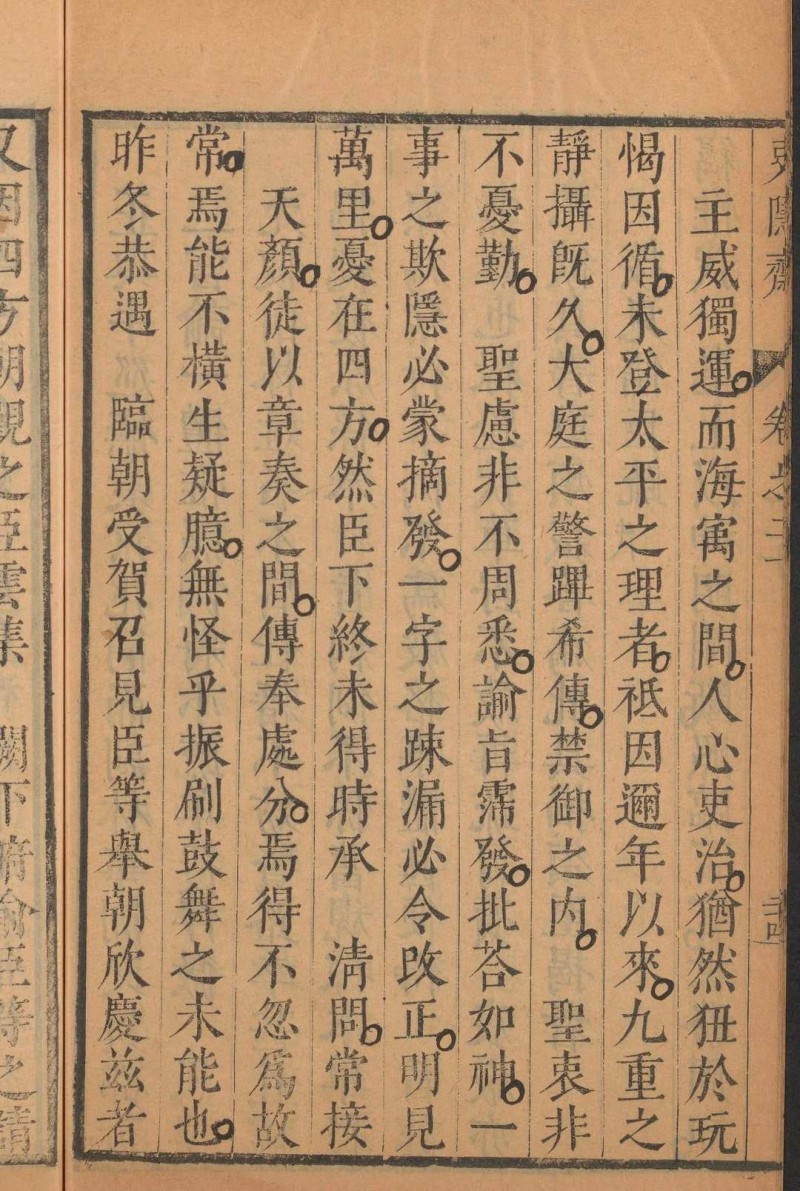 卷之二
主威獨運。而海㝢之間。人心吏治。猶然狃於玩
愒因循。未登太平之理者。祗因邇年以來。九重之
靜攝旣久。大庭之警蹕希傳。禁御之内。 聖衷非
不憂勤。 聖慮非不周悉。諭旨霈發。批荅如神。一
事之欺隱必蒙摘發。一字之踈漏必令改正。明見
萬里。憂在四方。然臣下終未得時承 淸問。常接
天顏。徒以章奏之間。傳奉處分。焉得不忽爲故
常。焉能不橫生疑臆。無怪乎振刷鼓舞之未能也。
昨冬恭遇 臨朝受賀召見臣等舉朝欣慶兹者
四方朝覲之臣雲集 闕下